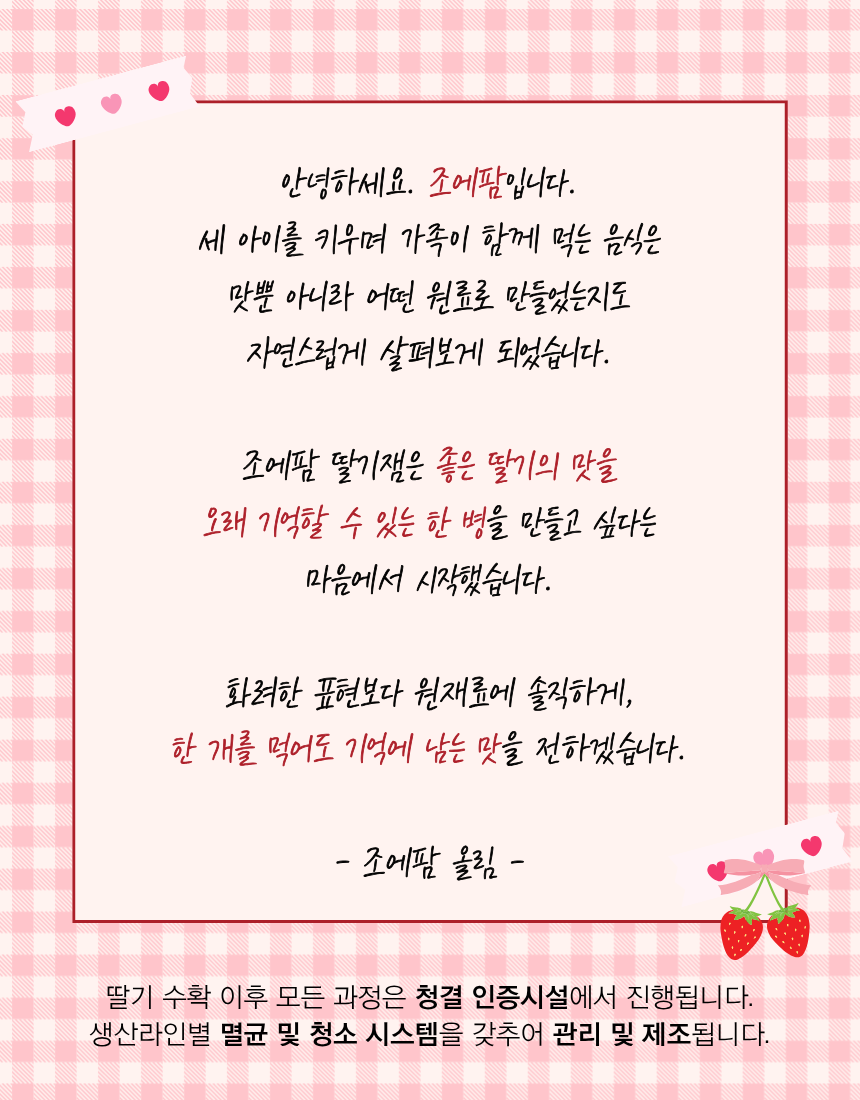 안녕하세요. 조에팜입니다.
세 아이를 키우며 가족이 함께 먹는 음식은
맛뿐 아니라 어떤 원료로 만들었는지도
자연스럽게 살펴보게 되었습니다.
조에팜 딸기잼은 좋은 딸기의 맛을
오래 기억할 수 있는 한 병을 만들고 싶다는
마음에서 시작했습니다.
화려한 표현보다 원재료에 솔직하게,
한 개를 먹어도 기억에 남는 맛을 전하겠습니다.
- 조에팜 올림 -
딸기 수확 이후 모든 과정은 청결 인증시설에서 진행됩니다.
생산라인별 멸균 및 청소 시스템을 갖추어 관리 및 제조됩니다.